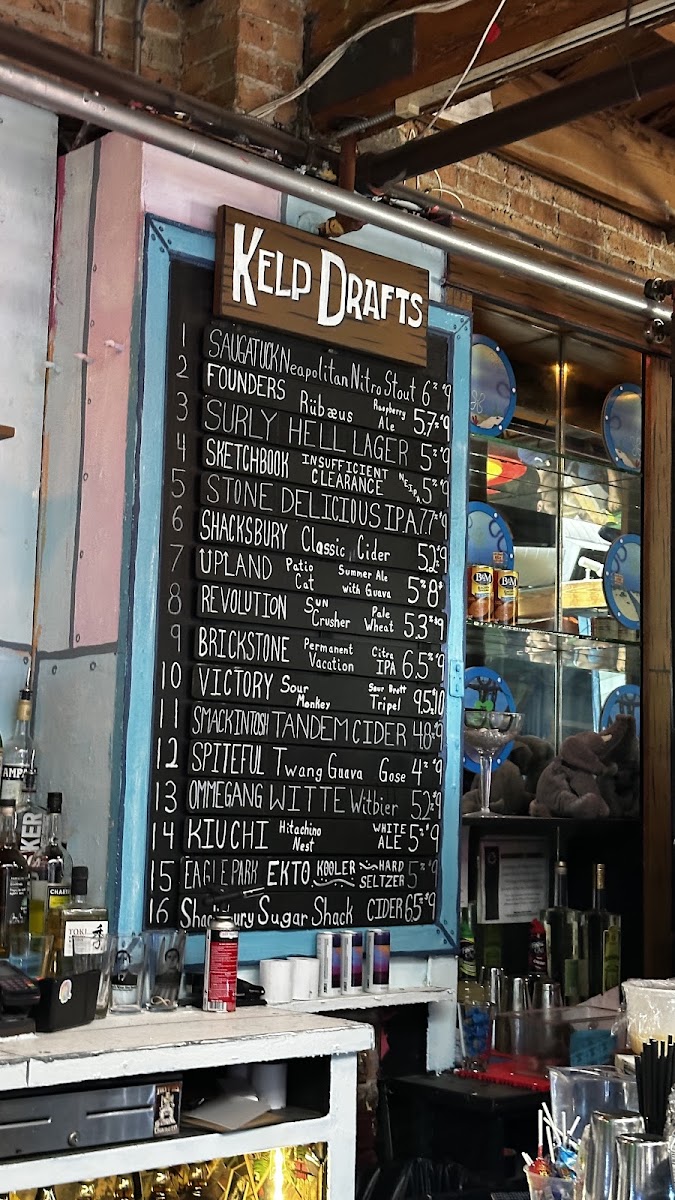 KELP DRAFTS
1 SAUGATUCK Neapolitan Nitro Stout 6% $9
2 FOUNDERS Rübæus Raspberry Ale 5.7% $9
3 SURLY HELL LAGER 5% $9
4 SKETCHBOOK INSUFFICIENT CLEARANCE N.E.I.P.A. 5% $9
5 STONE DELICIOUS IPA 7.7% $9
6 SHACKSBURY Classic Cider 5.2% $9
7 UPLAND Patio Cat Summer Ale with Guava 5% 8$
8 REVOLUTION SUN Crusher Pale Wheat 5.3% $9
9 BRICKSTONE Permanent Vacation Citra IPA 6.5% $9
10 VICTORY Sour Monkey Sour Brett Tripel 9.5% $10
11 SMACKINTOSH TANDEM CIDER 4.8% $9
12 SPITEFUL Twang Guava Gose 4% $9
13 OMMEGANG WITTE Witbier 5.2% $9
14 KIUCHI Hitachino Nest WHITE ALE 5% $9
15 EAGLE PARK EKTO KOOLER HARD SELTZER 5% $9
16 Shacksbury Sugar Shack CIDER 6.5% $9
B&M
B&M
TOKI
季